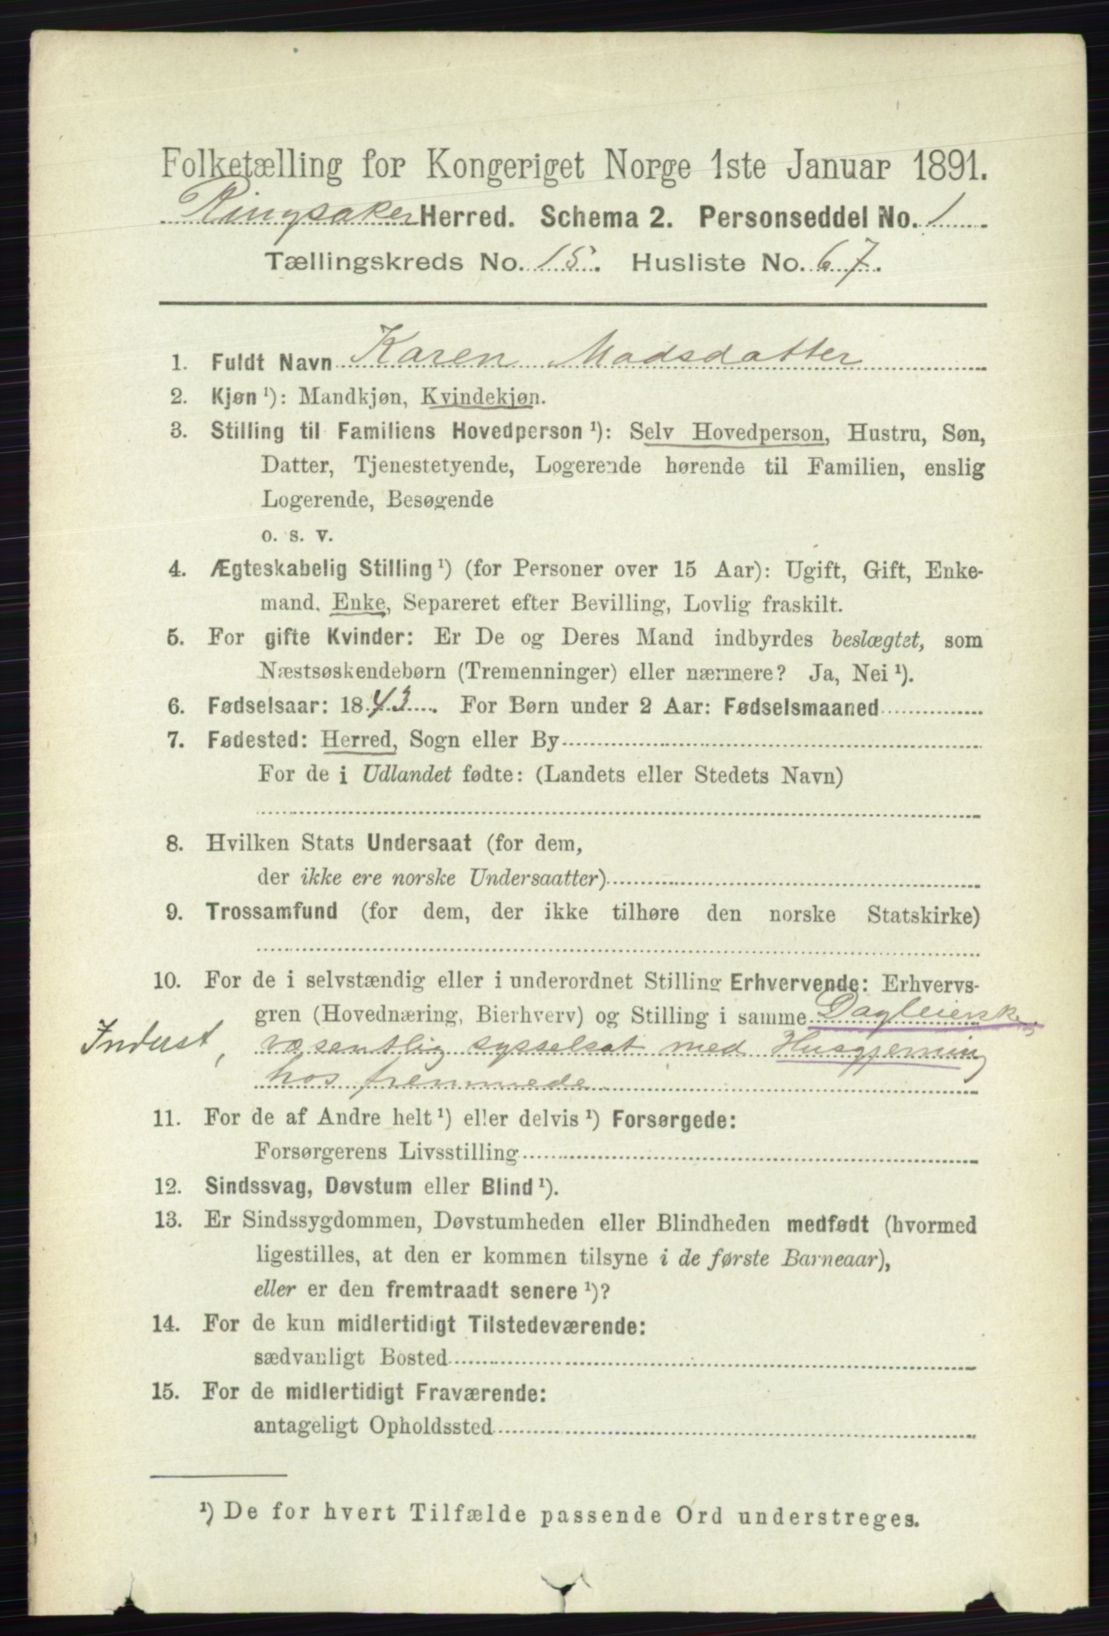 Folketælling for Kongeriget Norge 1ste Januar 1891.
Ringsaker Herred. Schema 2. Personseddel No. 1
Tællingskreds No. 15. Husliste No. 67.
1. Fuldt Navn Karen Madsdatter
2. Kjøn ¹): Mandkjøn, Kvindekjøn.
3. Stilling til Familiens Hovedperson ¹): Selv Hovedperson, Hustru, Søn,
Datter, Tjenestetyende, Logerende hørende til Familien, enslig
Logerende, Besøgende
o. s. v.
4. Ægteskabelig Stilling ¹) (for Personer over 15 Aar): Ugift, Gift, Enke-
mand, Enke, Separeret efter Bevilling, Lovlig fraskilt.
5. For gifte Kvinder: Er De og Deres Mand indbyrdes beslægtet, som
Næstsøskendebørn (Tremenninger) eller nærmere? Ja, Nei ¹).
6. Fødselsaar: 1843. For Børn under 2 Aar: Fødselsmaaned
7. Fødested: Herred, Sogn eller By
For de i Udlandet fødte: (Landets eller Stedets Navn)
8. Hvilken Stats Undersaat (for dem,
der ikke ere norske Undersaatter)
9. Trossamfund (for dem, der ikke tilhøre den norske Statskirke)
10. For de i selvstændig eller i underordnet Stilling Erhvervende: Erhvervs-
gren (Hovednæring, Bierhverv) og Stilling i samme Dagleiersk,
Inderst, væsentlig sysselsat med Husgjerning
hos fremmede.
11. For de af Andre helt ¹) eller delvis ¹) Forsørgede:
Forsørgerens Livsstilling
12. Sindssvag, Døvstum eller Blind ¹).
13. Er Sindssygdommen, Døvstumheden eller Blindheden medfødt (hvormed
ligestilles, at den er kommen tilsyne i de første Barneaar),
eller er den fremtraadt senere ¹)?
14. For de kun midlertidigt Tilstedeværende:
sædvanligt Bosted
15. For de midlertidigt Fraværende:
antageligt Opholdssted
¹) De for hvert Tilfælde passende Ord understreges.